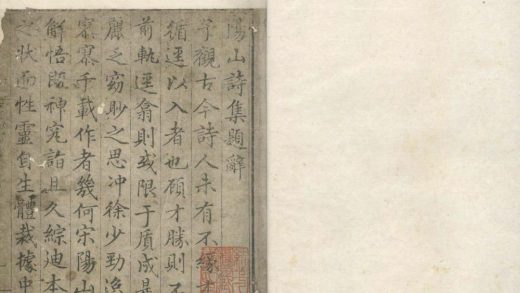 陽山詩集題辭
予觀古今詩人未有不緣才
循逕以入者也碩才勝則不
前軌逕翕則或限于盾成是
麗之窈眇之思冲徐少勁逸
寥寥千載作者幾何宋陽山
解悟徹神完詣且久綜迪本
之狀而性靈自生體裁據中